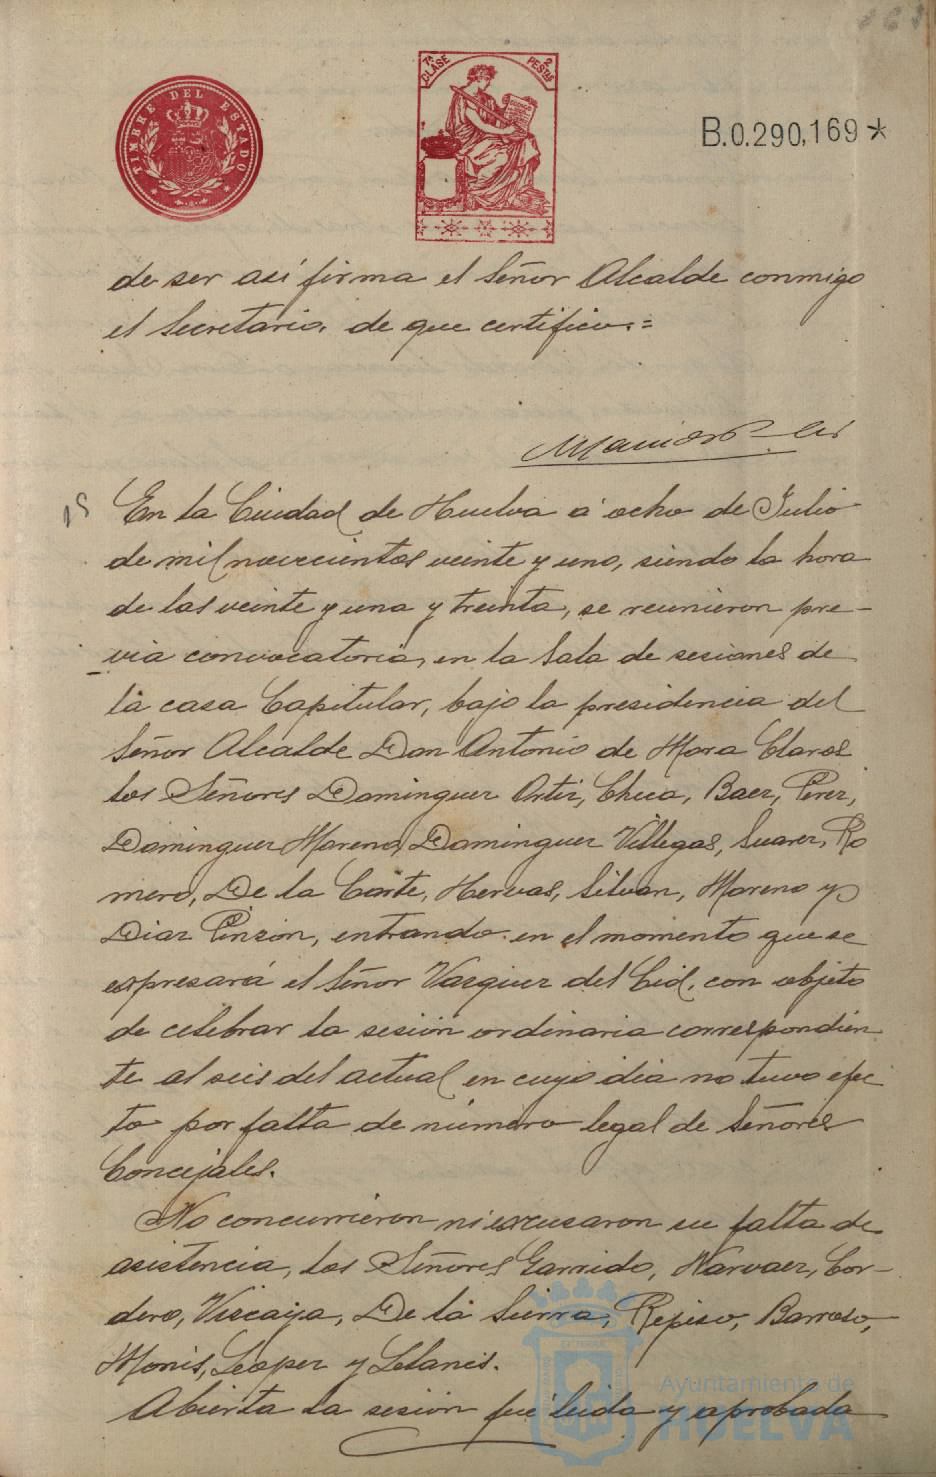 TIMBRE DEL ESTADO
7ª CLASE 2 PESTAS
B.0.290,169*
de ser así firma el Señor Alcalde conmigo
el Secretario, de que certifico.=
15
En la Ciudad de Huelva á ocho de Julio
de mil novecientos veinte y uno, siendo la hora
de las veinte y una y treinta, se reunieron pre-
via convocatoria, en la Sala de sesiones de
la casa Capitular, bajo la presidencia del
Señor Alcalde Don Antonio de Mora Claros
los Señores Dominguez Ortiz, Checa, Baez, Perez,
Dominguez Moreno, Dominguez Villegas, Suarez, Ro
mero, De la Corte, Hervas, Silvan, Moreno y
Diaz Pinzón, entrando en el momento que se
expresará el Señor Vazquez del Cid, con objeto
de celebrar la sesión ordinaria correspondien
te al seis del actual en cuyo dia no tuvo efec
to por falta de número legal de Señores
Concejales.
No concurrieron ni excusaron su falta de
asistencia, los Señores Garrido, Narvaez, Cor-
dero, Vizcaya, De la Sierra, Repiso, Barroso,
Monis, Lopez y
Abierta la sesión fué leida y aprobada
Ayuntamiento de
HUELVA